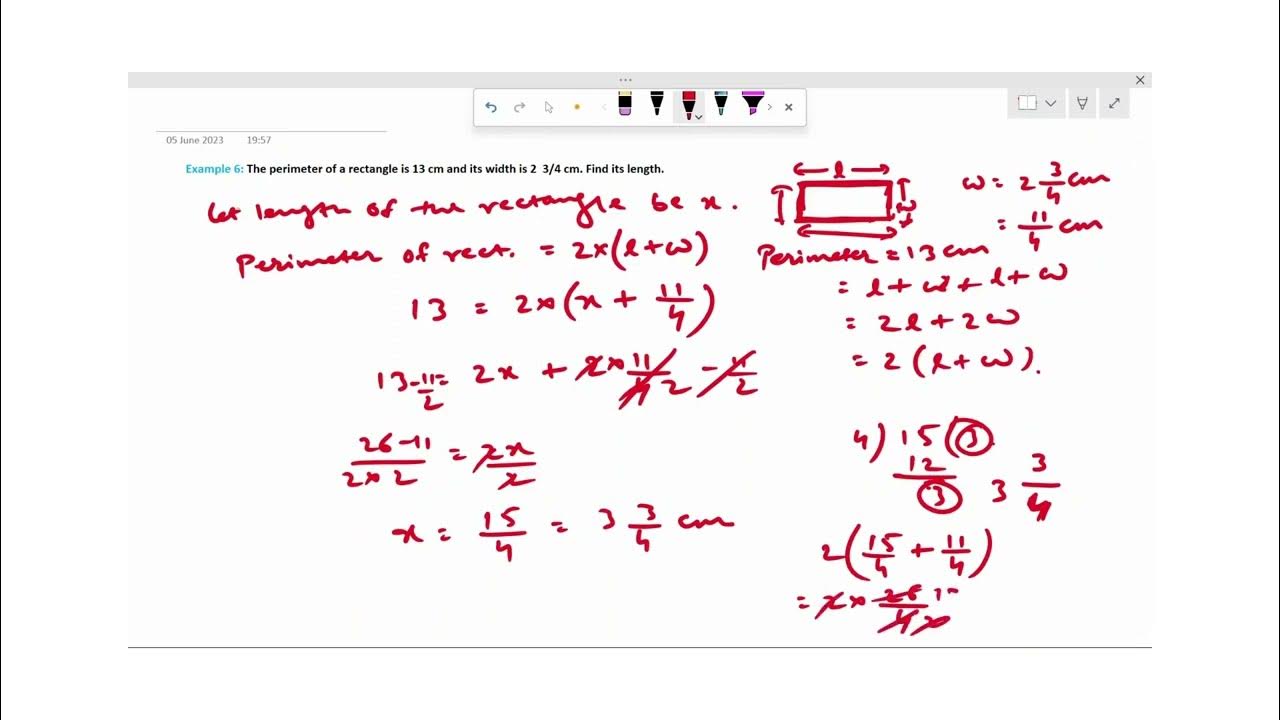 05 June 2023 19:57
Example 6: The perimeter of a rectangle is 13 cm and its width is 2 3/4 cm. Find its length.
Let length of the rectangle be x.
Perimeter of rect. = 2×(l+w)
13 = 2×(x + 11/4)
13 - 11/2 = 2x + 2×11/4 2 - 11/2
26-11/2×2 = 2x/2
x = 15/4 = 3 3/4 cm
l
w
w = 2 3/4 cm
= 11/4 cm
Perimeter = 13 cm
= l + w + l + w
= 2l + 2w
= 2(l+w).
4)15(3
12
3
3 3/4
2(15/4 + 11/4)
= 2×26/4